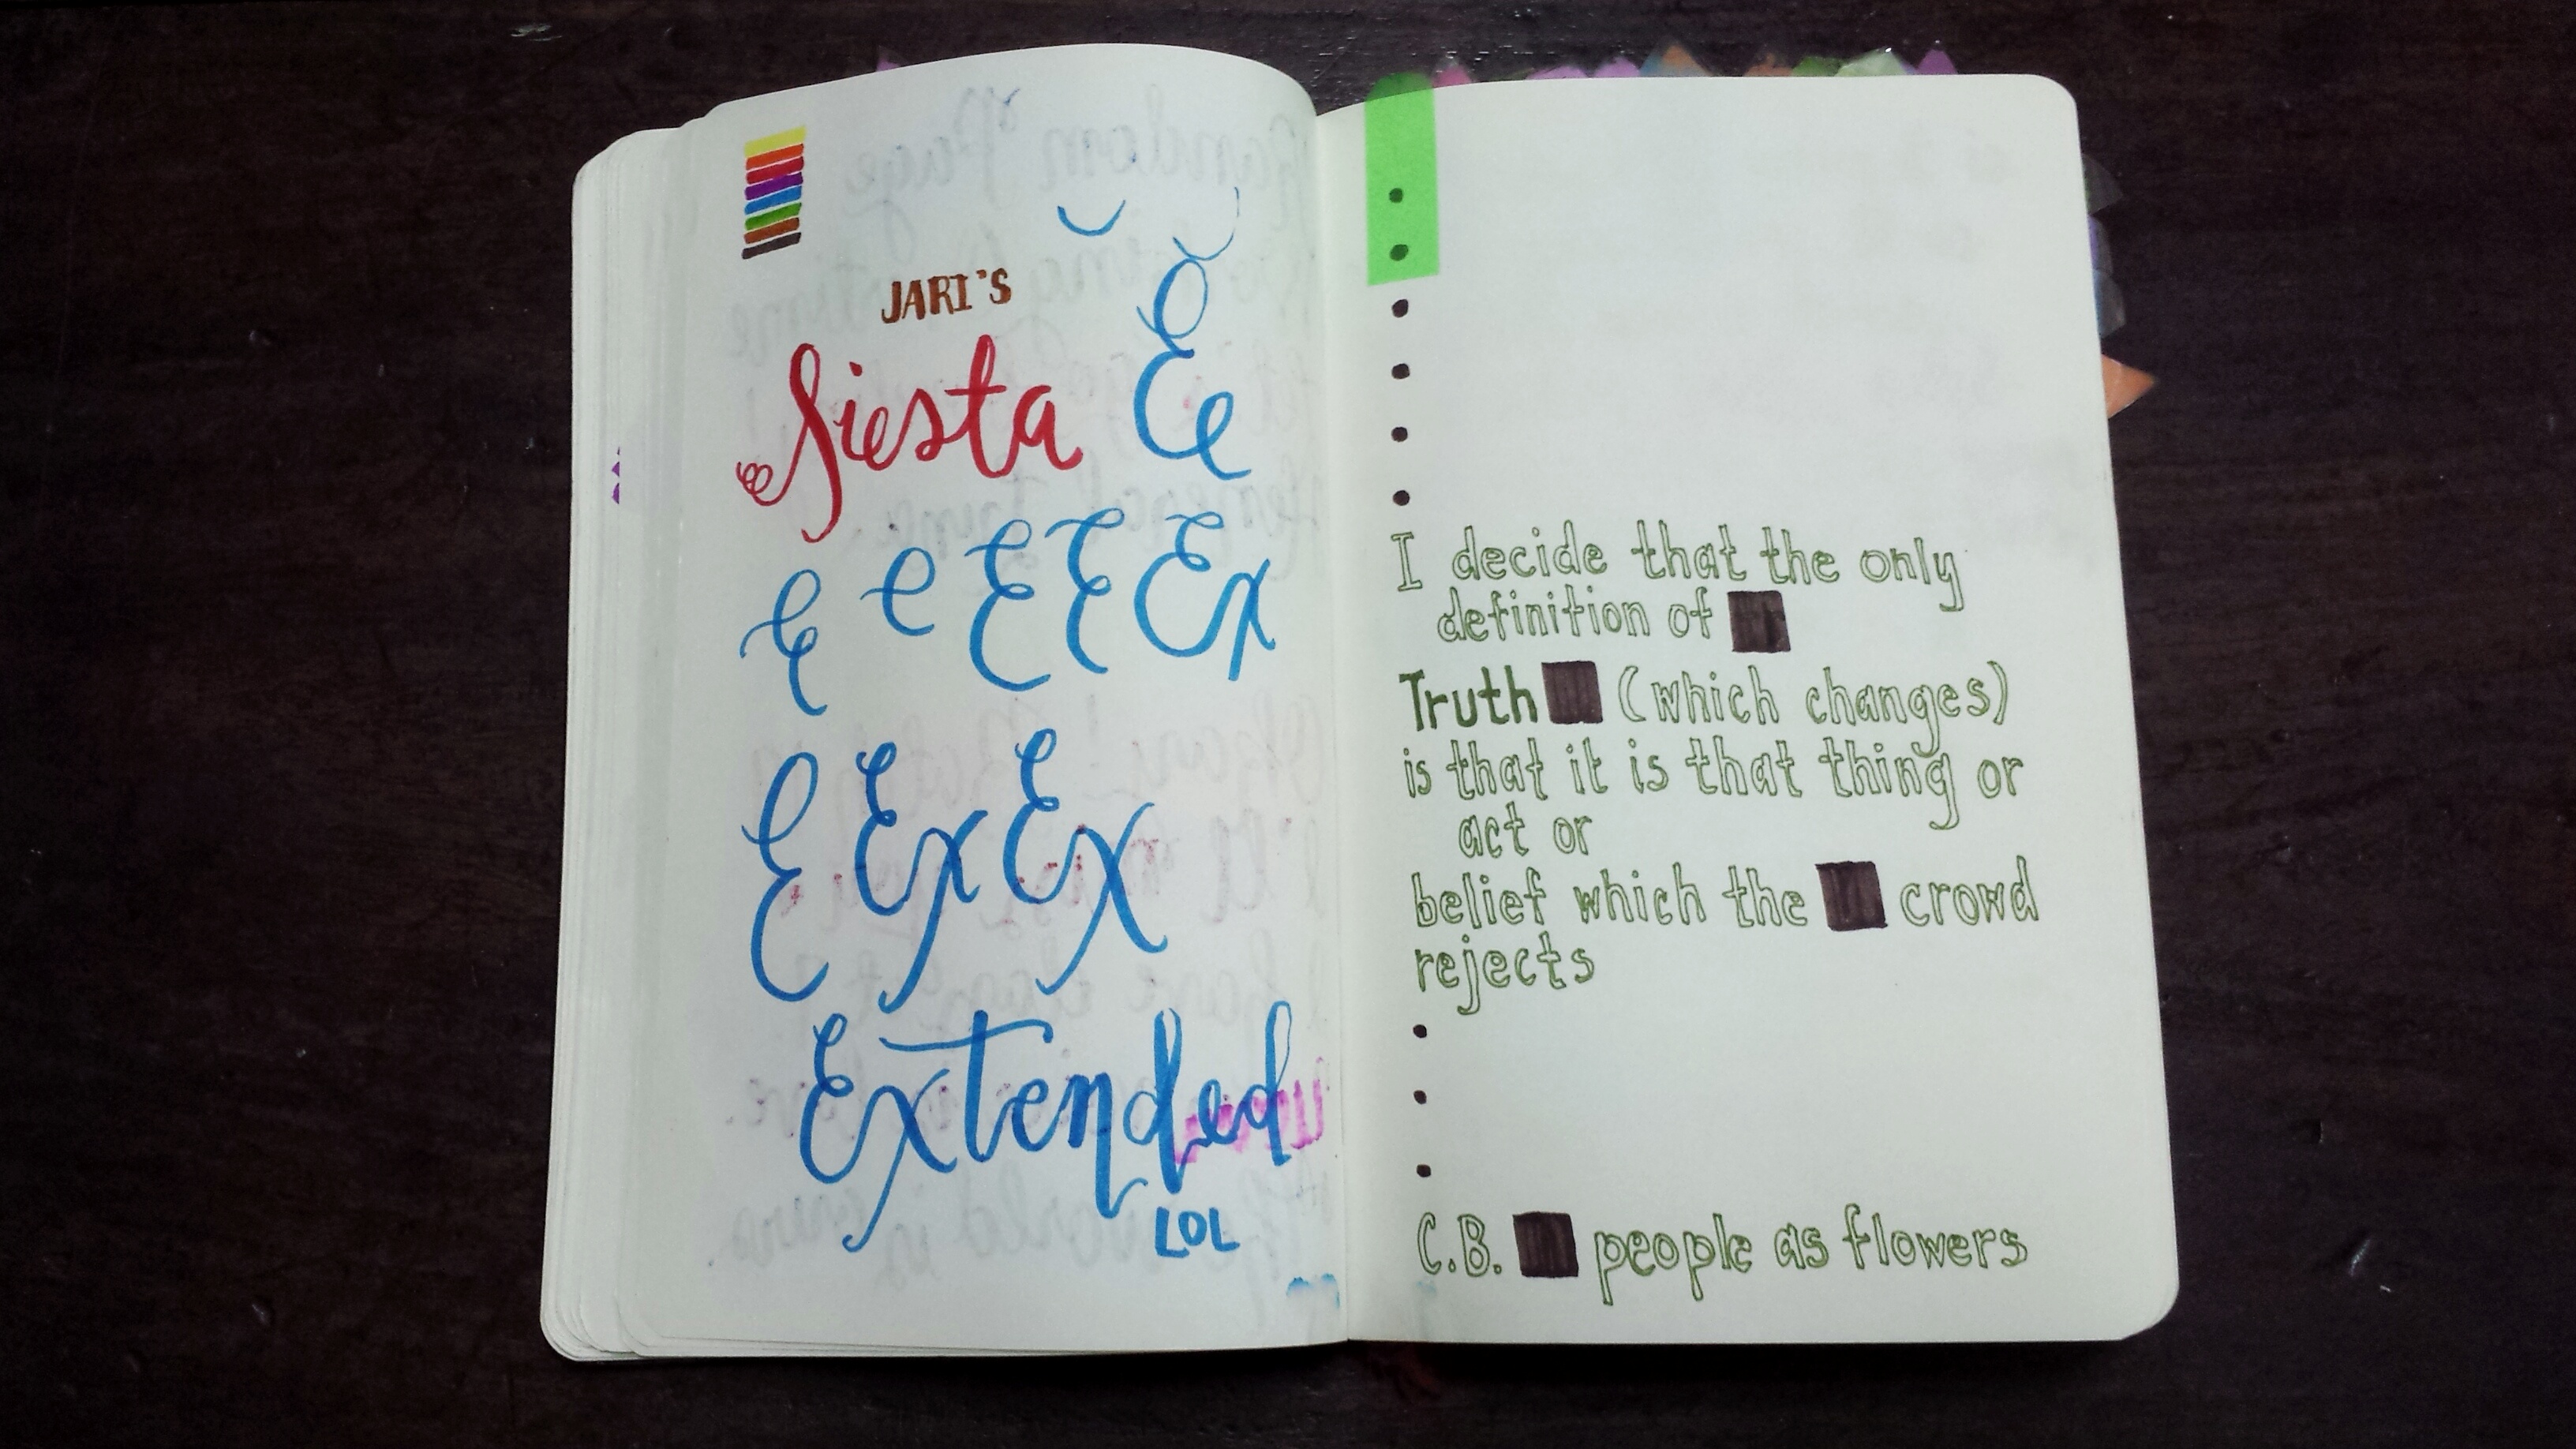 JARI'S
Siesta E
E e E E Ex
E Ex Ex
Extended
LOL
I decide that the only
definition of
Truth (which changes)
is that it is that thing or
act or
belief which the crowd
rejects
C.B. people as flowers